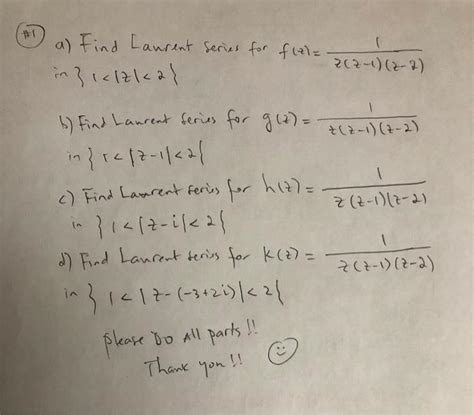 #1 a) Find Laurent series for f(z) = 1 / z(z-1)(z-2)
in { 1<|z|<2 }
b) Find Laurent series for g(z) = 1 / z(z-1)(z-2)
in { 1<|z-1|<2 {
c) Find Laurent series for h(z) = 1 / z(z-1)(z-2)
in { 1<|z-i|<2 {
d) Find Laurent series for K(z) = 1 / z(z-1)(z-2)
in } 1<|z-(-3+2i)|<2 {
please Do All parts !!
Thank you !!